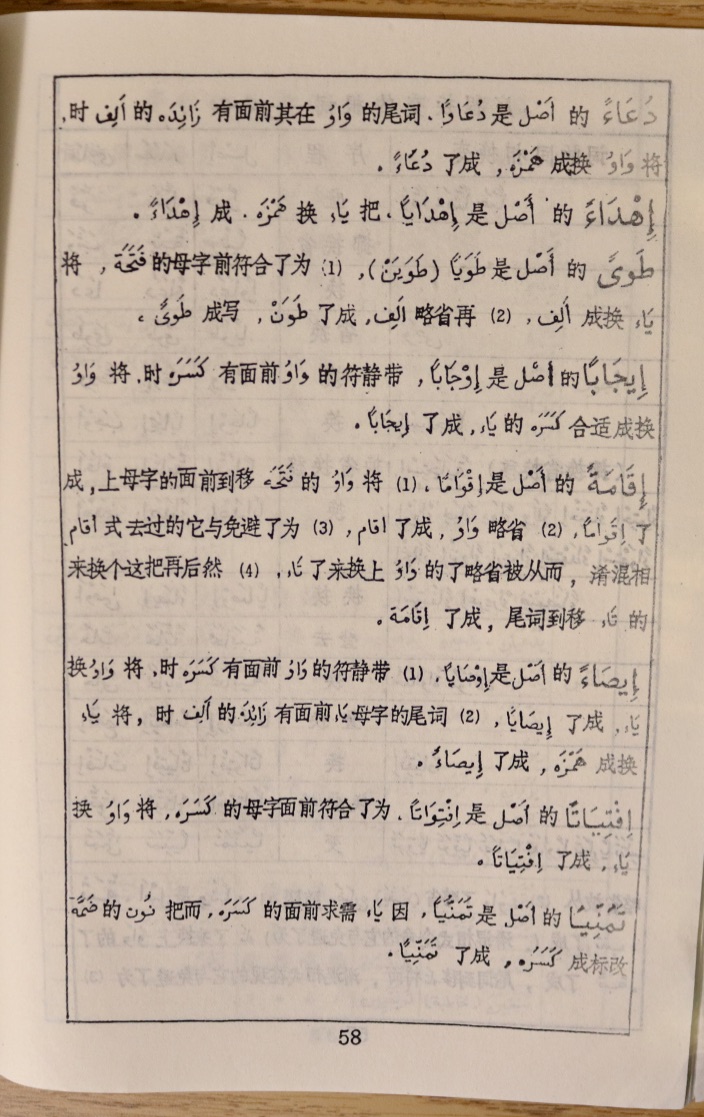 دُعَاءً 的 أَصْل 是 دُعَاوًا. 词尾的 وَاوُ 在其前面有 زَائِدَه 的 اَلِف 时,
将 وَاوُ 换成 هَمْزَه, 成了 دُعَاءً.
إِهْدَاءً 的 أَصْل 是 إِهْدَايًا. 把 يَاء 换 هَمْزَه. 成 إِهْدَاءً.
طَوىً 的 أَصْل 是 طَوَيًا (طَوَيَنْ), (1) 为了符合前字母的 فَتْحَة, 将
يَاء 换成 اَلِف, (2) 再省略 اَلِف, 成了 طَوَنْ, 写成 طَوىً.
إِيجَابًا 的 أَصْل 是 إِوْجَابًا, 带静符的 وَاوُ 前面有 كَسْرَه 时, 将 وَاوُ
换成适合 كَسْرَه 的 يَاء, 成了 إِيجَابًا.
إِقَامَةً 的 أَصْل 是 إِقْوَامًا. (1) 将 وَاوُ 的 فَتْحَه 移到前面的字母上, 成
了 إِقَوَامًا, (2) 省略 وَاوُ, 成了 اقام, (3) 为了避免与它的过去式 اقام
相混淆, 而从被省略了的 وَاوُ 上换来了 تَاء, (4) 然后再把这个换来
的 تَاء 移到词尾, 成了 اِقَامَة.
إِيصَاءً 的 أَصْل 是 إِوْصَايًا, (1) 带静符的 وَاوُ 前面有 كَسْرَه 时, 将 وَاوُ 换
يَاء, 成了 إِيصَايًا, (2) 词尾的字母 يَاء 前面有 زَائِدَه 的 اَلِف 时, 将 يَاء
换成 هَمْزَه, 成了 إِيصَاءً.
اِفْتِيَاتًا 的 أَصْل 是 اِفْتِوَاتًا. 为了符合前面字母的 كَسْرَه, 将 وَاوُ 换
يَاء, 成了 اِفْتِيَاتًا.
تَمَنِّيًا 的 أَصْل 是 تَمَنُّيًا, 因 يَاء 需求前面的 كَسْرَه, 而把 نُون 的 ضَمَّة
改标成 كَسْرَه, 成了 تَمَنِّيًا.
58